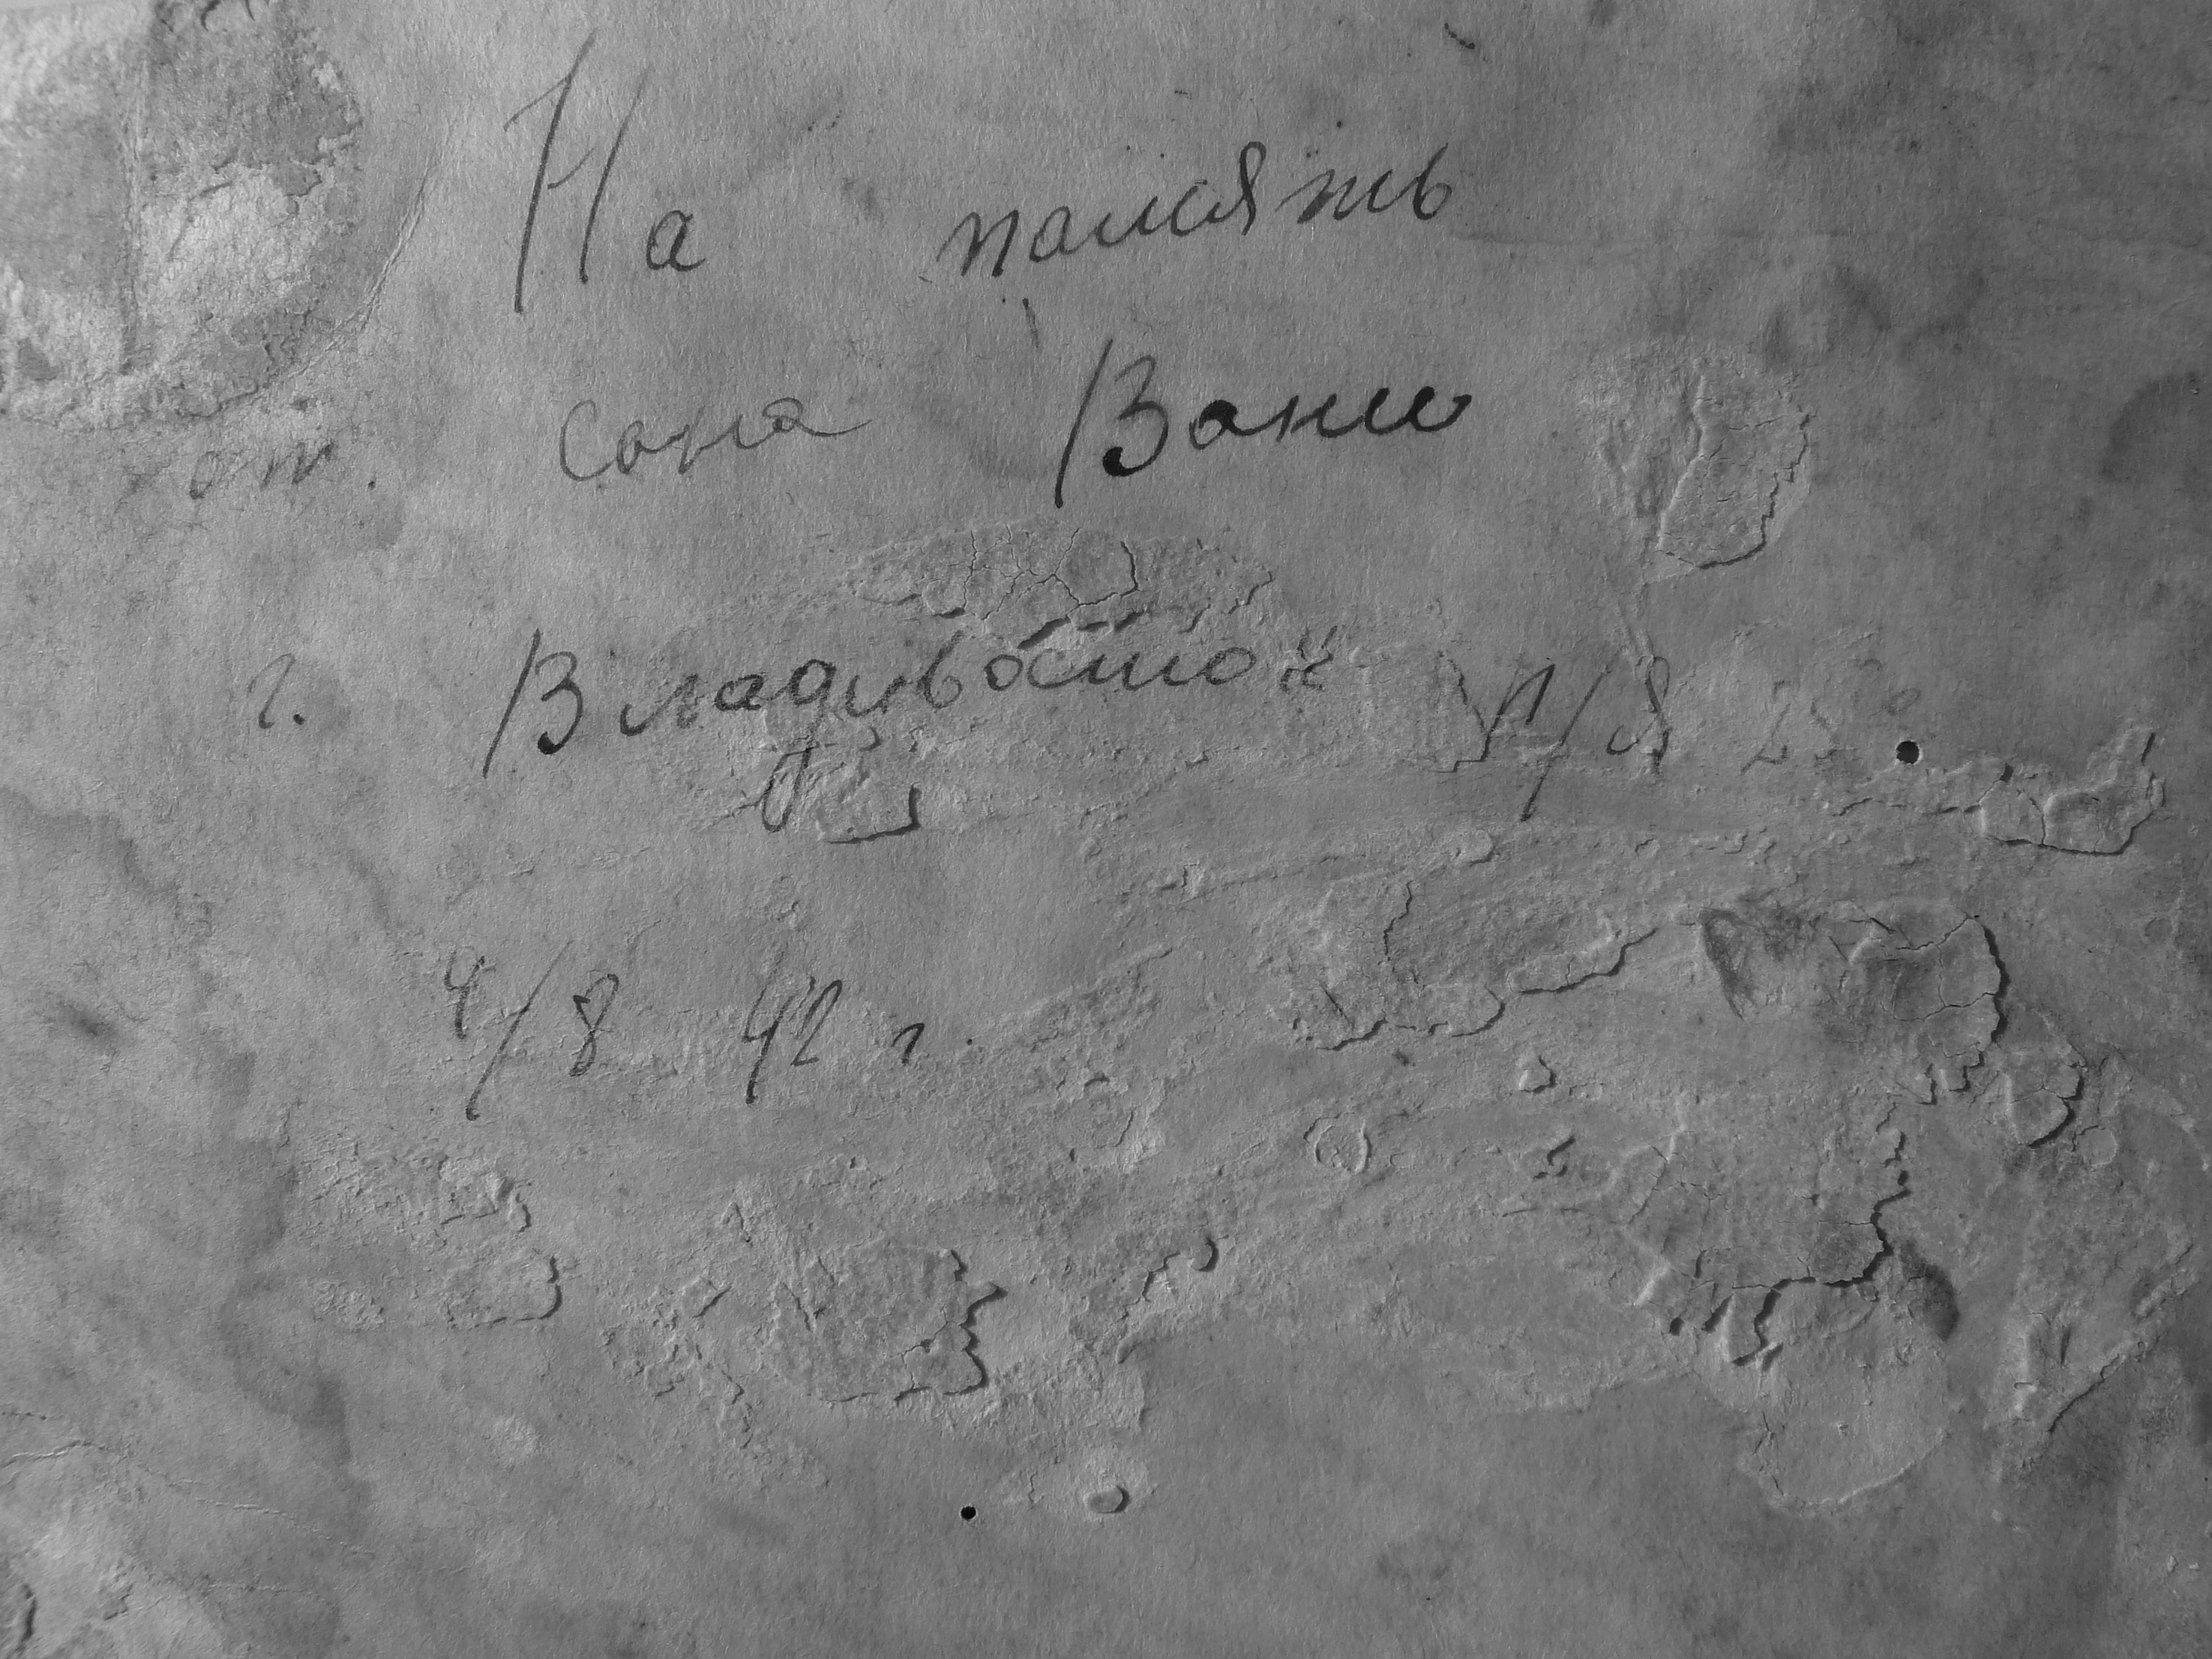 На память
от. сона Вани
г. Владивосток п/я
4/8 42 г.